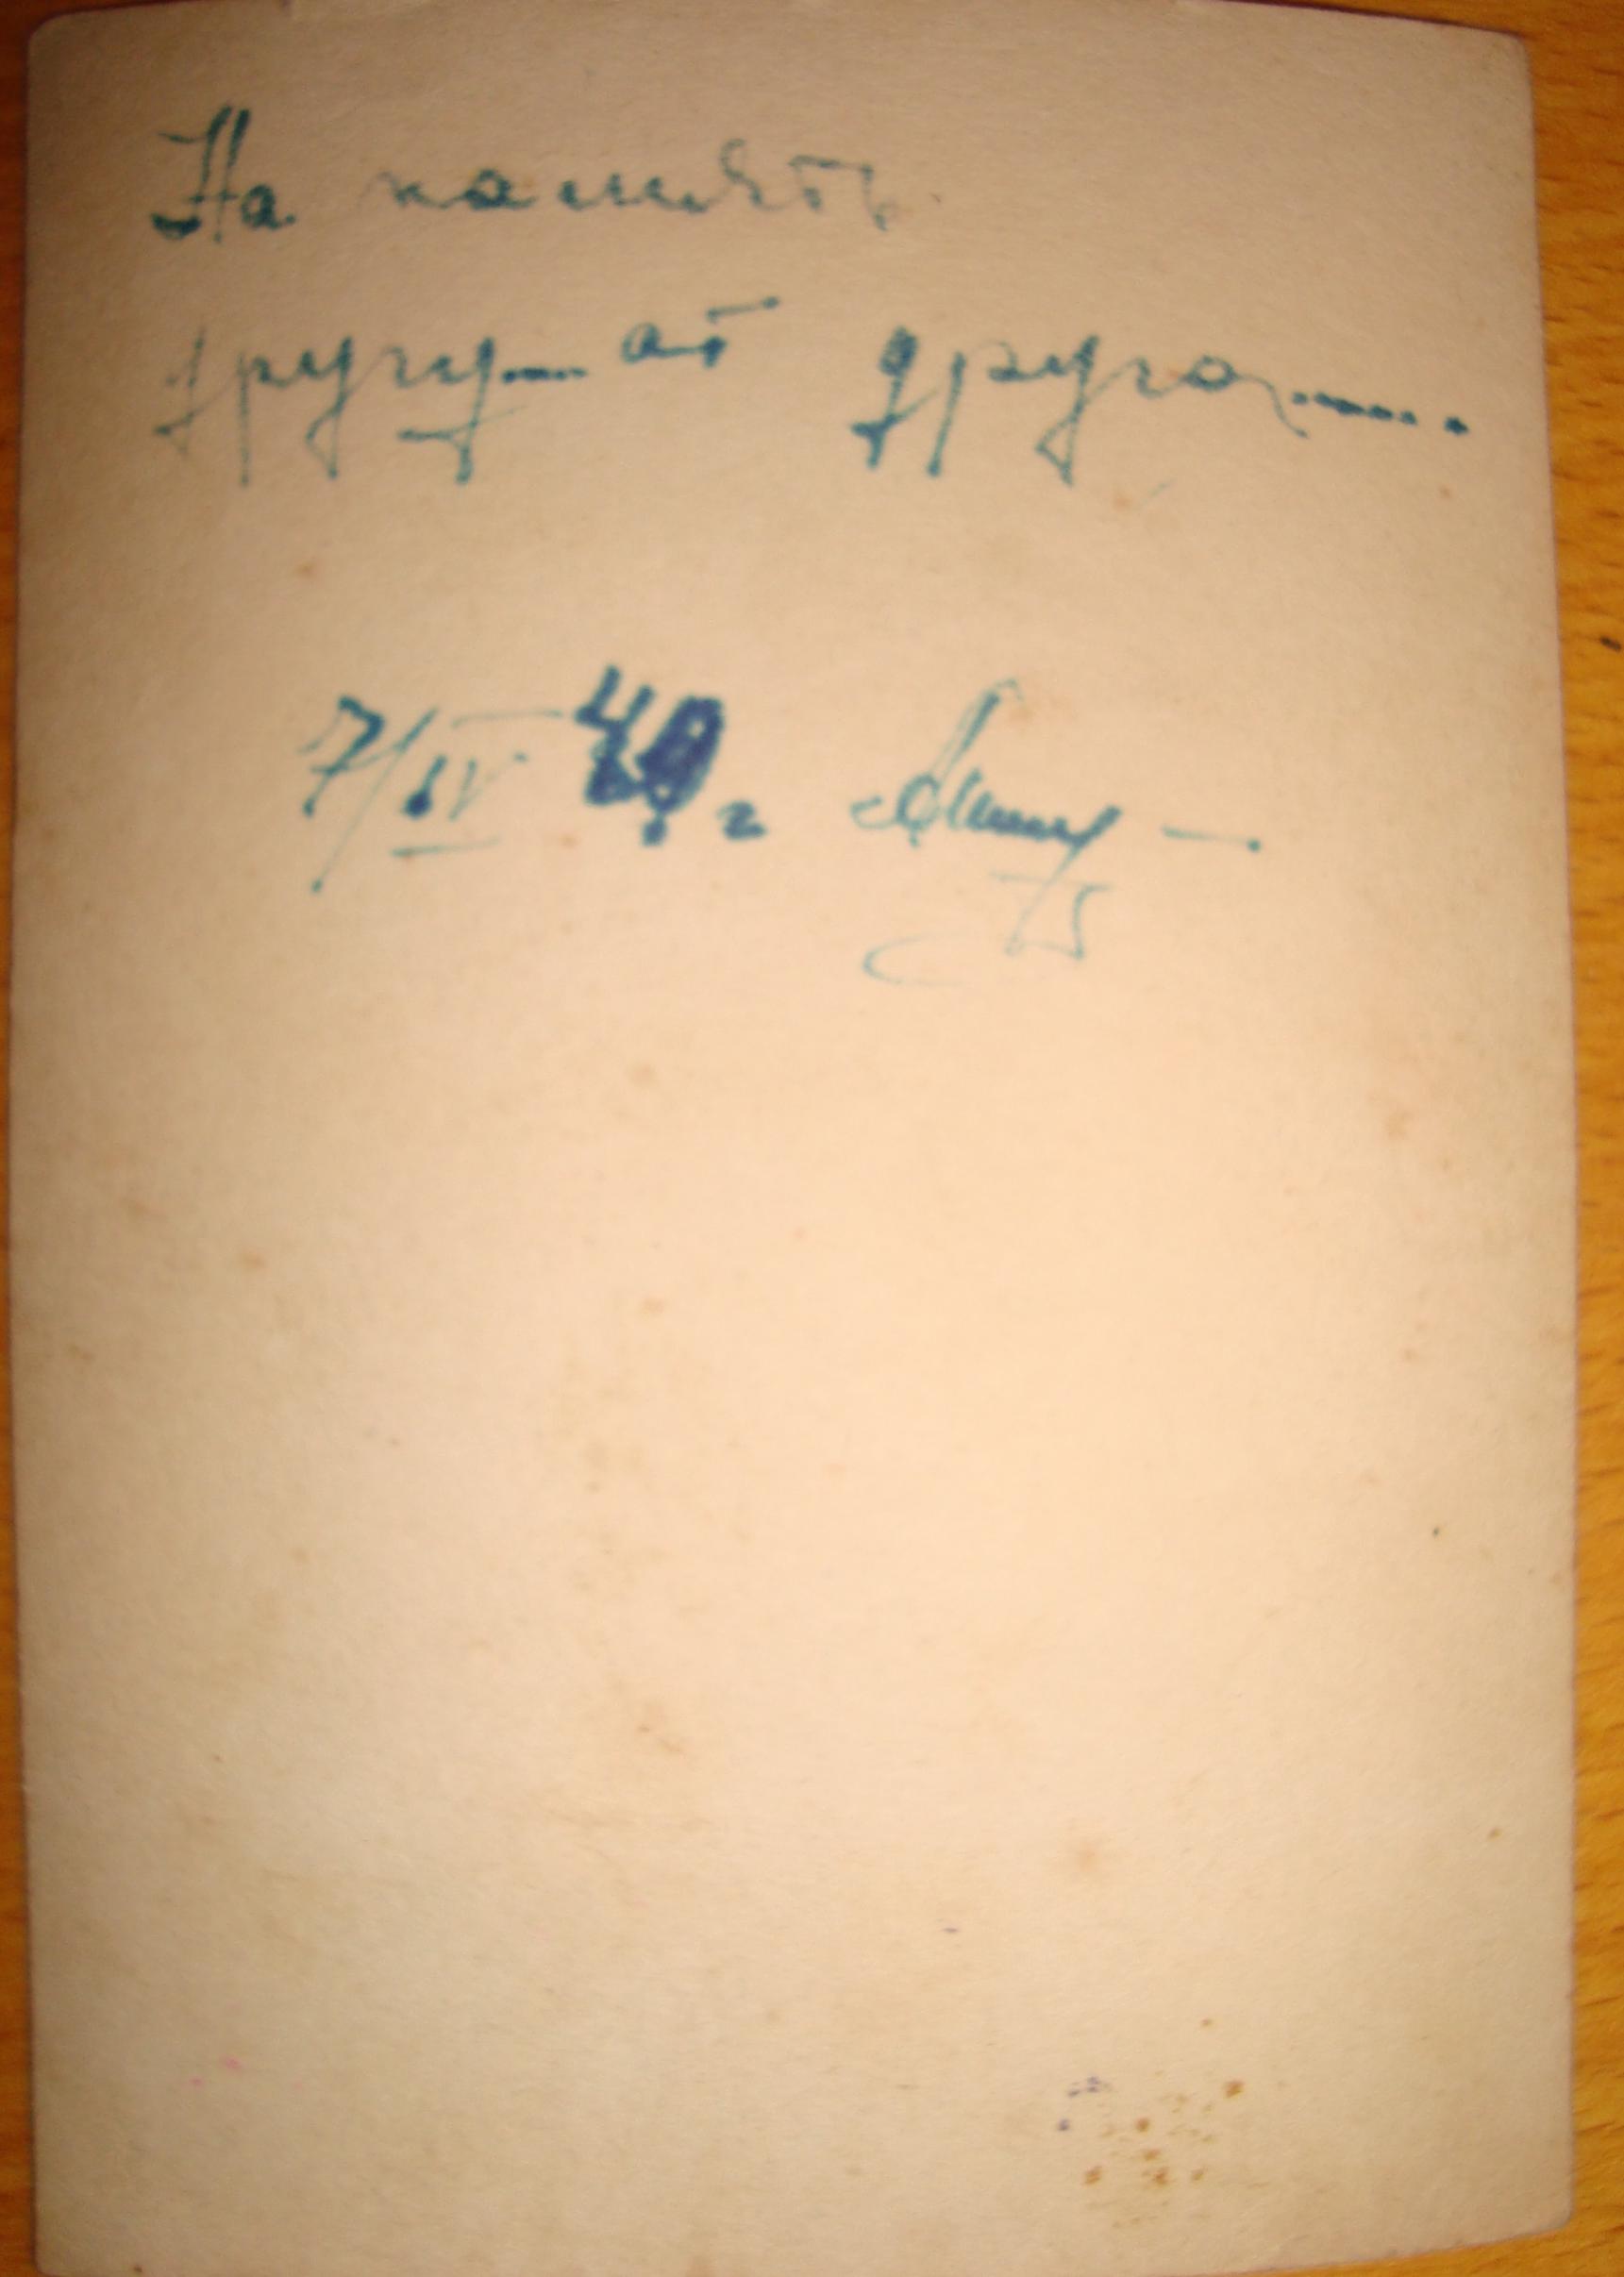 На память
другу... от друга.....
7/IV 49 г